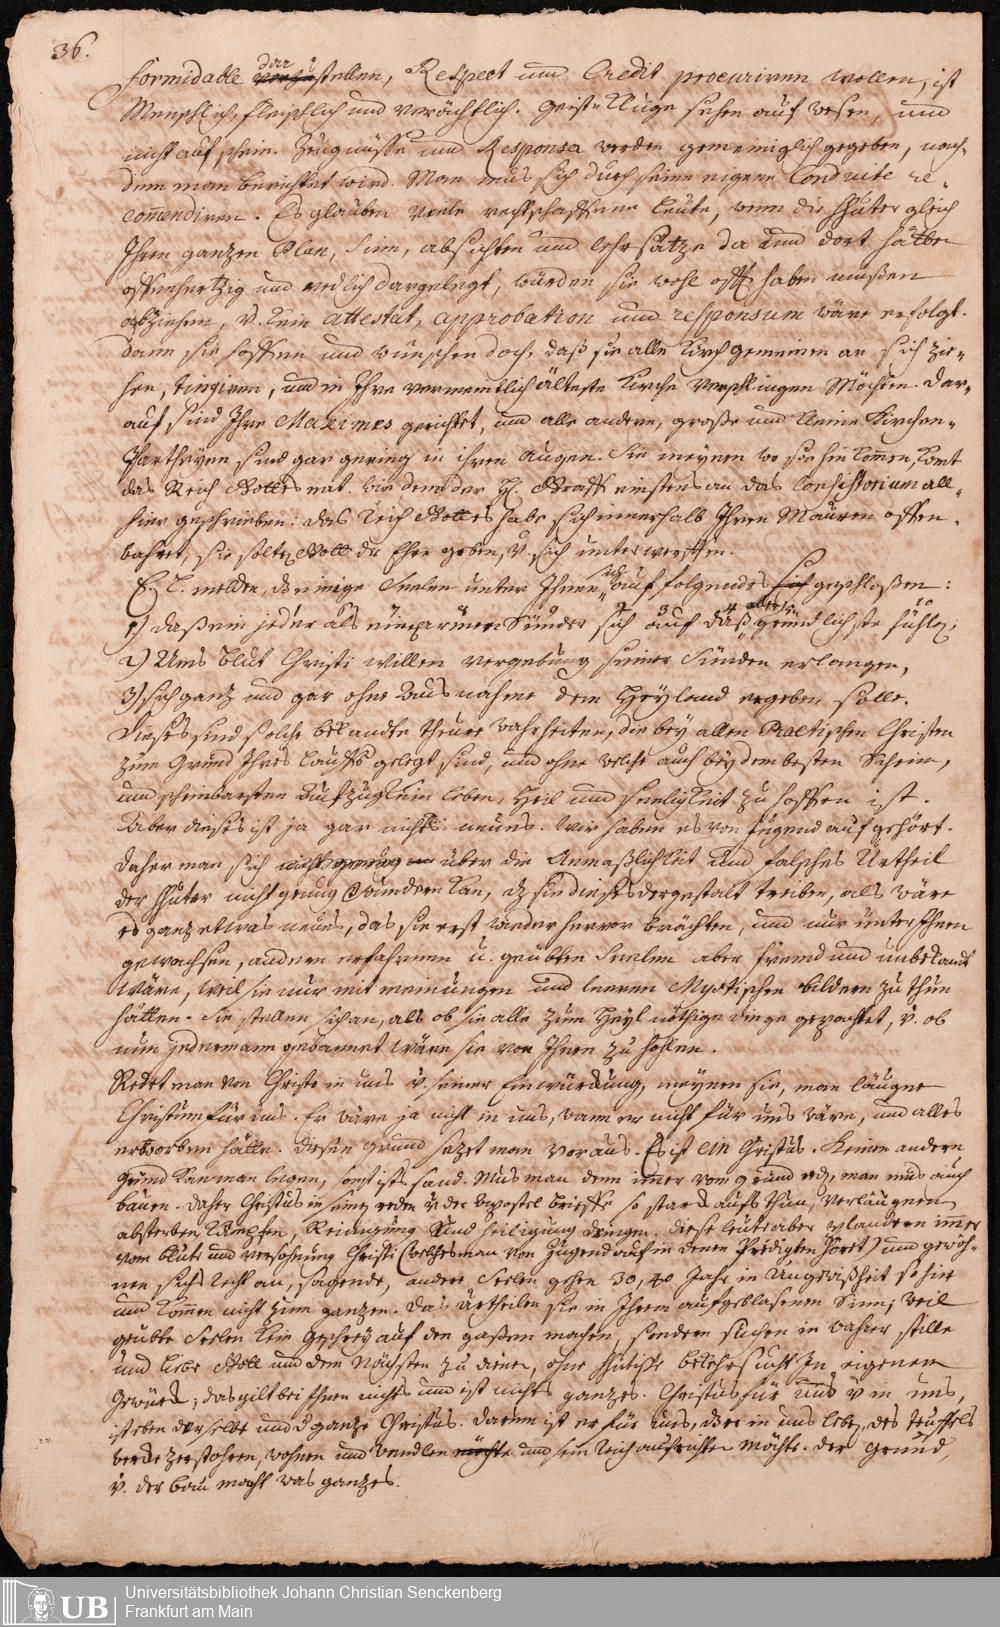 36.
formidable darzustellen, Respect und Credit procuriren wollen, ist
Menschlich, fleischlich und verächtlich. Geist-kluge sehen auf wesen, und
nicht auf schein. Zeugnüsse und Responsa werden gemeiniglich gegeben, nach-
dem man berichtet wird. Man mus sich durch seine eigene Conduite re-
com̄endiren. Es glauben viele rechtschaffene leute, wenn die Hhüter gleich
Ihren ganzen Plan, Sinn, absichten und lehrsätze da und dort hätten
offenhertzig und redlich dargelegt, würden sie wohl offt haben müßen
abziehen, v. kein attestat, approbation und responsum wäre erfolgt.
dann sie hoffen und wünschen doch, daß sie alle Kirchgemeinen an sich zie-
hen, tingiren, und in Ihre vermeintlich älteste Kirche verschlingen Möchten. Dar-
auf sind Ihre Maximes gerichtet, und alle andere, große und kleine Kirchen-
Partheyen sind gar gering in ihren augen. Sie meynen wo sie hin kom̄en, komt
das Reich Gottes mit. wie denn der H. Graff einstens an das Consistorium all-
hier geschrieben: das Reich Gottes habe sich innerhalb Ihren Mauren offen-
bahret, sie solten Gott die Ehre geben, v. sich unterwerffen.
E. L. melden, d einige Seelen unter Ihnen sich auf folgendes geschloßen:
1) daß ein jeder als ein armer Sünder sich auf das aller gründlichste fühle;
2) Ums blut Christi willen vergebung seiner Sünden erlangen,
3) sich ganz und gar ohne Ausnahme dem Heyland ergeben solle.
Dieses sind solche bekandte theure wahrheiten, die bey allen Practischen Christen
zum Grund Ihres lauffs gelegt sind, und ohne welche auch bey dem besten Schein,
und scheinbarsten Aufzug kein leben, Heil und seeligkeit zu hoffen ist.
Aber dieses ist ja gar nichts neues. Wir haben es von Jugend auf gehört.
daher man sich über die Anmaßlichkeit und falsches Urtheil
der Hhüter nicht genug wundern kan, d sie dieses dergestalt treiben, als wäre
es ganz etwas neues, das sie erst wieder hervor brächten, und nur unter Ihnen
gewachsen, andern erfahrnen u. geübten Seelen aber fremd und unbekandt
wäre, weil sie nur mit meinungen und leeren Mystischen bildern zu thun
hatten. Sie stellen sich an, als ob sie alle zum Heyl nöthige dinge gepachtet, v. ob
nun jedermann gebannet wäre sie von Ihnen zu hohlen.
Redet man von Christo in uns v. seiner Einwürckung, meynen sie, man läugne
Christum für uns. Er wäre ja nicht in uns, wann er nicht für uns wäre, und alles
erworben hätte. diesen Grund sezet man voraus. Es ist ein Christus. Keinen andern
Grund kan man legen, sonst ists sand. Mus man denn immer vom Grund reden, man mus auch
bauen. Daher Christus in seinen reden v. der Apostel brieffe so starck aufs thun, verläugnen
absterben, kämpfen, Reinigung und heiligung dringen. Diese leute aber plaudern im̄er
vom blute und versöhnung Christi (welches man von Jugend auf in denen Predigten höret) und gewöh-
nen sichs recht an, sagende, andere Seelen gehen 30, 40 Jahr in Ungewißheit so hin
und kom̄en nicht zum ganzen. Das urtheilen sie in Ihrem aufgeblasenen Sinn; weil
geübte Seelen kein Geschrey auf den gaßen machen, sondern suchen in wahrer stille
und liebe Gott und dem Nächsten zu dienen, ohne Hhütische bekehrsucht in eigenem
Gewürck; das gilt bei Ihnen nichts und ist nichts ganzes. Christus für uns v in uns,
ist eben derselbe und d ganze Christus. Darum ist er für uns, d er in uns lebe, des teuffels
wercke zerstöhren, wohnen und wandlen und sein Reich aufrichten möchte. der Grund,
v. der bau macht was ganzes.
UB Universitätsbibliothek Johann Christian Senckenberg
Frankfurt am Main